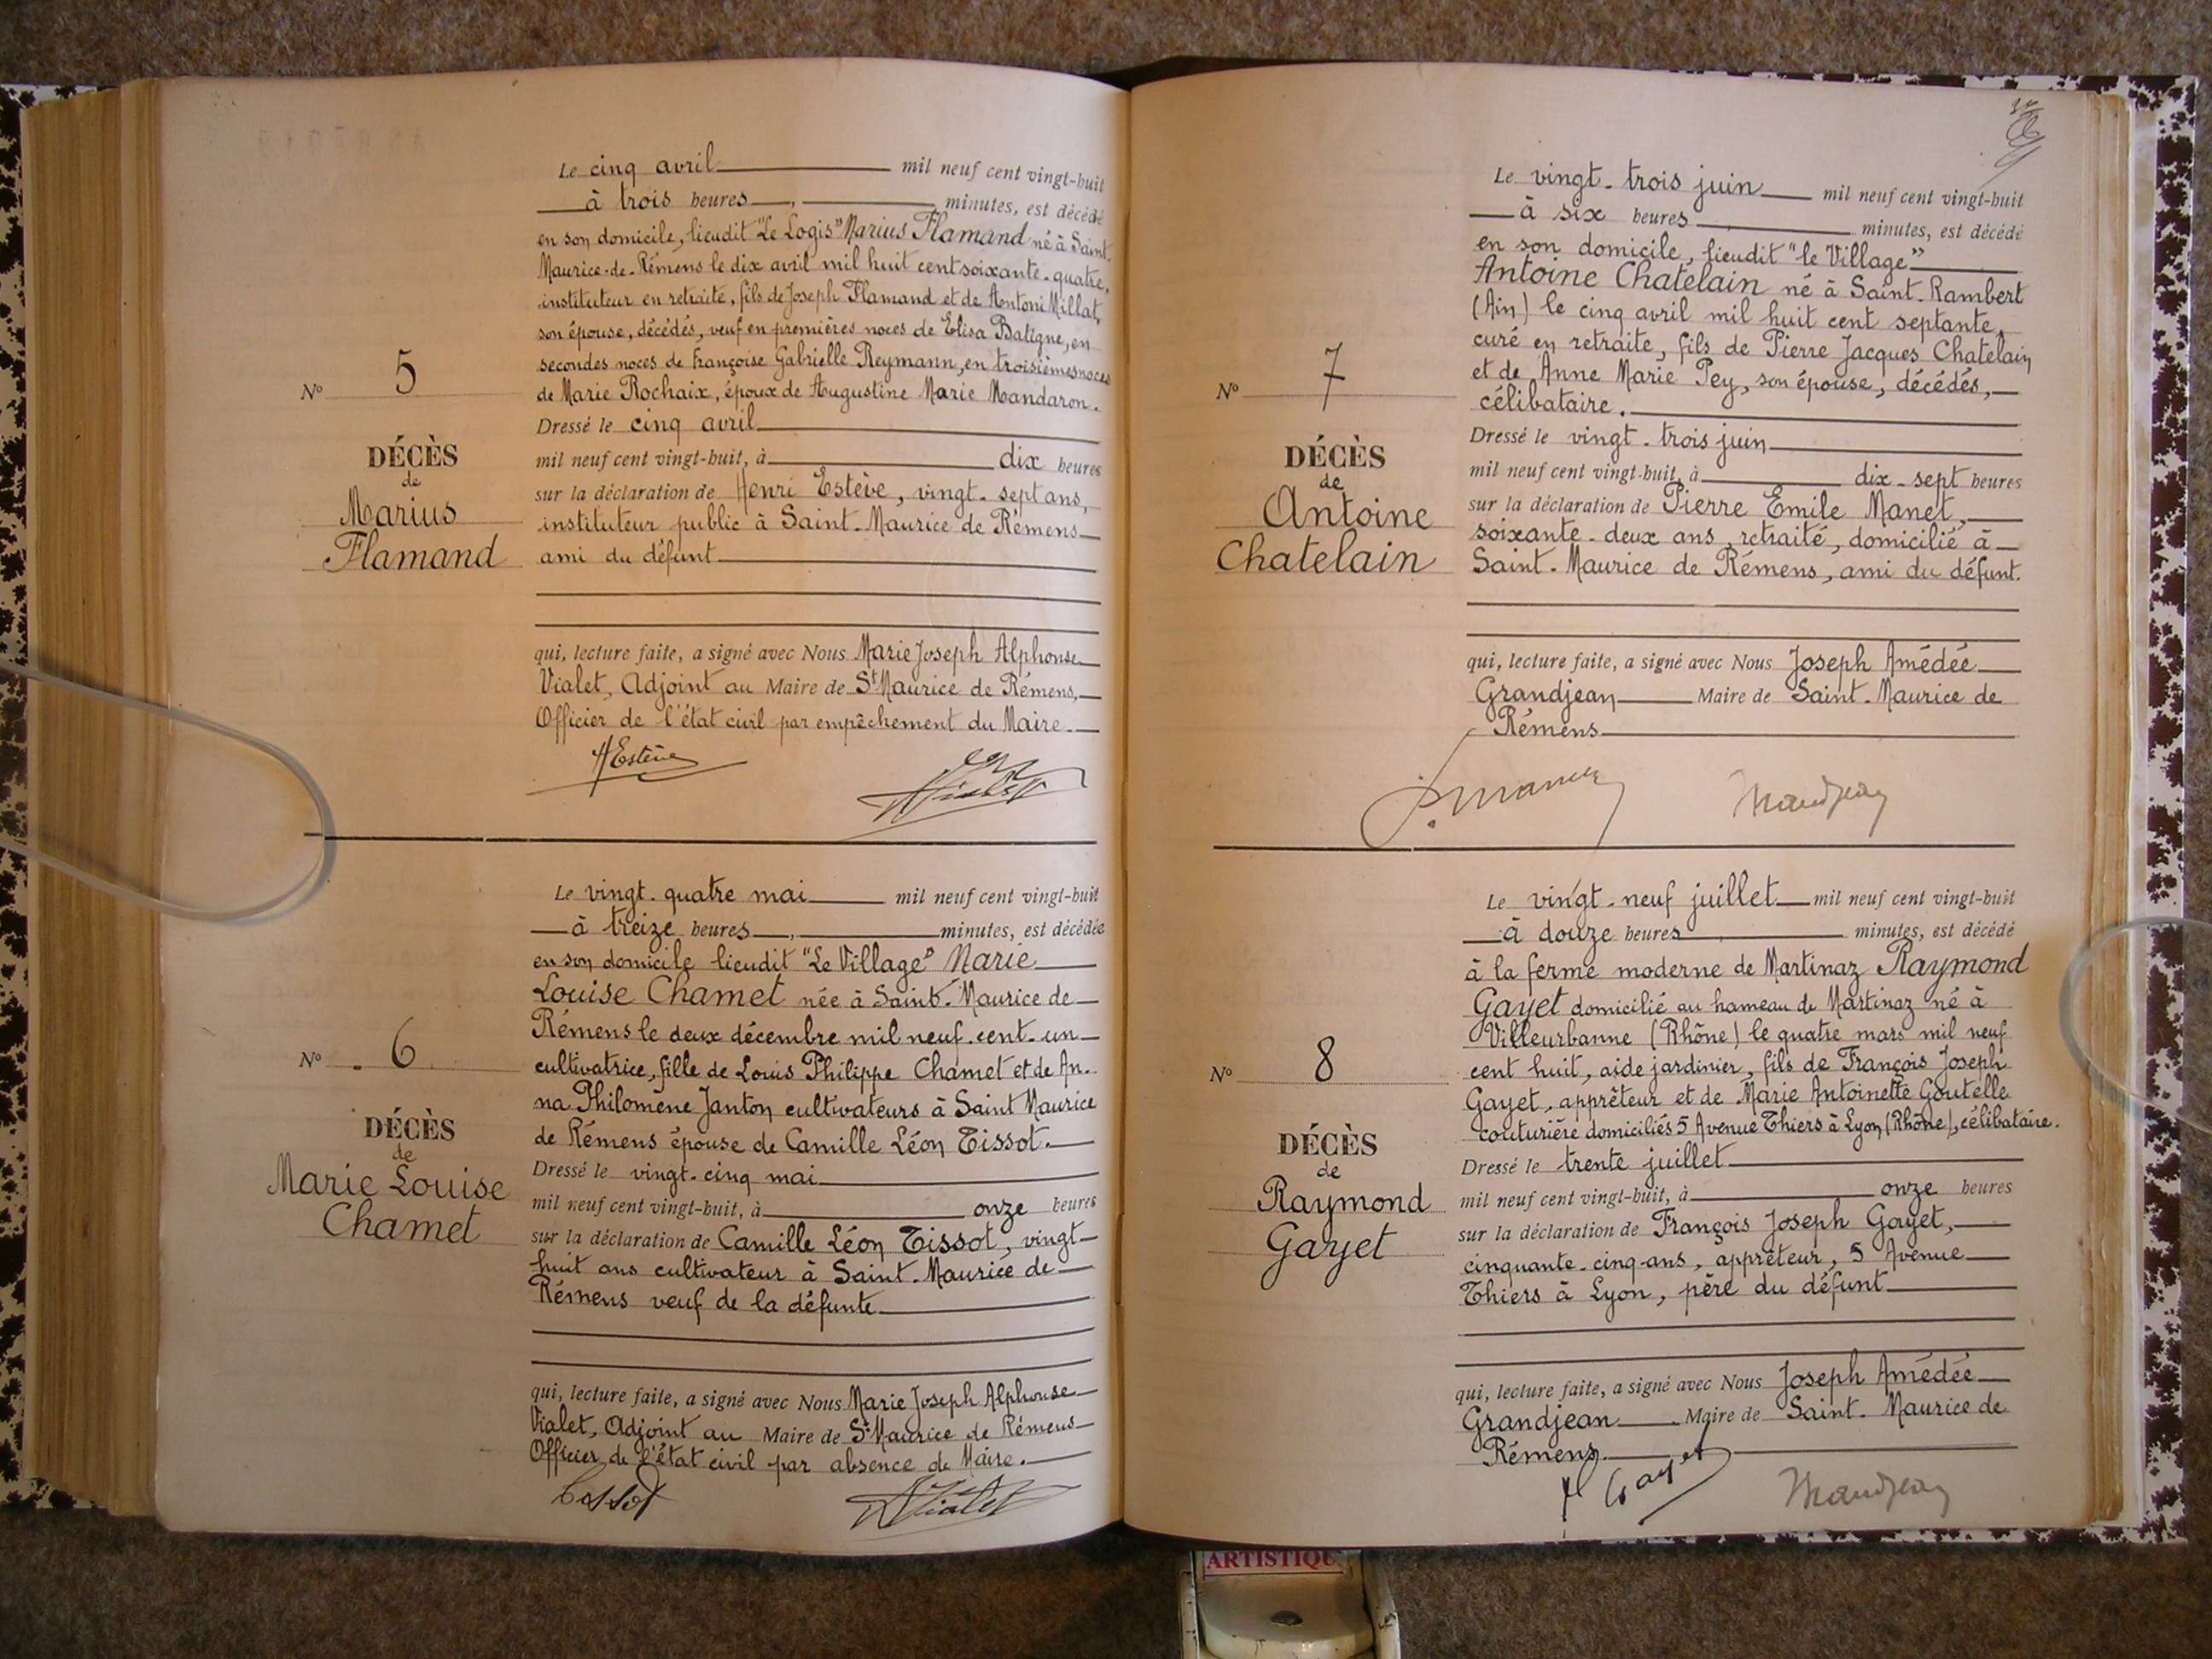 Le cinq avril mil neuf cent vingt-huit
à trois heures, minutes, est décédé
en son domicile, lieudit "Le Logis" Marius Flamand né à Saint-
Maurice-de-Rémens le dix avril mil huit cent soixante-quatre,
instituteur en retraite, fils de Joseph Flamand et de Antoni Millat,
son épouse, décédés, veuf en premières noces de Elisa Batigne, en
secondes noces de Françoise Gabrielle Reymann, en troisièmes noces
de Marie Rochaix, époux de Augustine Marie Mandaron.
Nº 5
DÉCÈS
de
Marius
Flamand
Dressé le cinq avril
mil neuf cent vingt-huit, à dix heures
sur la déclaration de Henri Estève, vingt-sept ans,
instituteur public à Saint-Maurice de Rémens
ami du défunt
qui, lecture faite, a signé avec Nous Marie Joseph Alphonse
Vialet, Adjoint au Maire de St Maurice de Rémens,
Officier de l'état civil par empêchement du Maire.
HEstève
Vialet
Le vingt-quatre mai mil neuf cent vingt-huit
à treize heures, minutes, est décédée
en son domicile lieudit "Le Village" Marie
Louise Chamet née à Saint-Maurice de
Rémens le deux décembre mil neuf-cent-un
cultivatrice, fille de Louis Philippe Chamet et de An-
na Philomène Janton cultivateurs à Saint Maurice
de Rémens épouse de Camille Léon Tissot.
Nº 6
DÉCÈS
de
Marie Louise
Chamet
Dressé le vingt-cinq mai
mil neuf cent vingt-huit, à onze heures
sur la déclaration de Camille Léon Tissot, vingt-
huit ans cultivateur à Saint-Maurice de
Rémens veuf de la défunte
qui, lecture faite, a signé avec Nous Marie Joseph Alphonse
Vialet, Adjoint au Maire de St Maurice de Rémens
Officier de l'état civil par absence du Maire.
Tissot
Vialet
Le vingt-trois juin mil neuf cent vingt-huit
à six heures minutes, est décédé
en son domicile, lieudit "le Village"
Antoine Chatelain né à Saint-Rambert
(Ain) le cinq avril mil huit cent septante,
curé en retraite, fils de Pierre Jacques Chatelain
et de Anne Marie Pey, son épouse, décédés,
célibataire.
Nº 7
DÉCÈS
de
Antoine
Chatelain
Dressé le vingt-trois juin
mil neuf cent vingt-huit, à dix-sept heures
sur la déclaration de Pierre Emile Manet,
soixante-deux ans, retraité, domicilié à
Saint-Maurice de Rémens, ami du défunt.
qui, lecture faite, a signé avec Nous Joseph Amédée
Grandjean Maire de Saint-Maurice de
Rémens
P. Manet
Grandjean
Le vingt-neuf juillet mil neuf cent vingt-huit
à douze heures, minutes, est décédé
à la ferme moderne de Martinaz Raymond
Gayet domicilié au hameau de Martinaz né à
Villeurbanne (Rhône) le quatre mars mil neuf
cent huit, aide jardinier, fils de François Joseph
Gayet, apprêteur et de Marie Antoinette Goutelle
couturière domiciliés 5 Avenue Thiers à Lyon (Rhône), célibataire.
Nº 8
DÉCÈS
de
Raymond
Gayet
Dressé le trente juillet
mil neuf cent vingt-huit, à onze heures
sur la déclaration de François Joseph Gayet,
cinquante-cinq-ans, apprêteur, 5 Avenue
Thiers à Lyon, père du défunt
qui, lecture faite, a signé avec Nous Joseph Amédée
Grandjean Maire de Saint-Maurice de
Rémens
Gayet
Grandjean
ARTISTIQU